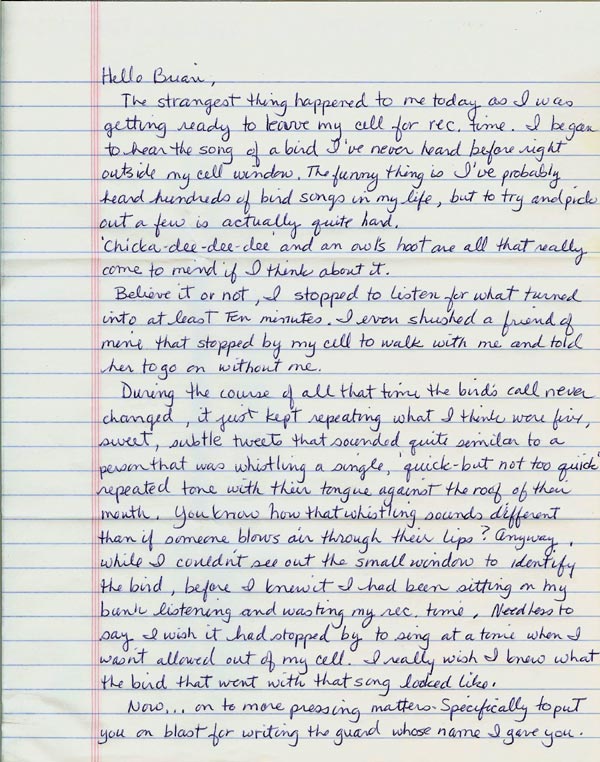 Hello Brian,
The strangest thing happened to me today as I was
getting ready to leave my cell for rec. time. I began
to hear the song of a bird I've never heard before right
outside my cell window. The funny thing is I've probably
heard hundreds of bird songs in my life, but to try and pick
out a few is actually quite hard.
'Chicka-dee-dee-dee' and an owls hoot are all that really
come to mend if I think about it.
Believe it or not, I stopped to listen for what turned
into at least ten minutes. I even shushed a friend of
mine that stopped by my cell to walk with me and told
her to go on without me.
During the course of all that time the bird's call never
changed, it just kept repeating what I think were five,
sweet, subtle tweets that sounded quite similar to a
person that was whistling a single, 'quick-but not too quick'
repeated tone with their tongue against the roof of their
mouth. You know how that whistling sounds different
than if someone blows air through their lips? Anyway,
while I couldn't see out the small window to identify
the bird, before I knew it I had been sitting on my
bunk listening and wasting my rec. time. Needless to
say I wish it had stopped by to sing at a time when I
wasn't allowed out of my cell. I really wish I knew what
the bird that went with that song looked like.
Now... on to more pressing matters. Specifically to put
you on blast for writing the guard whose name I gave you.